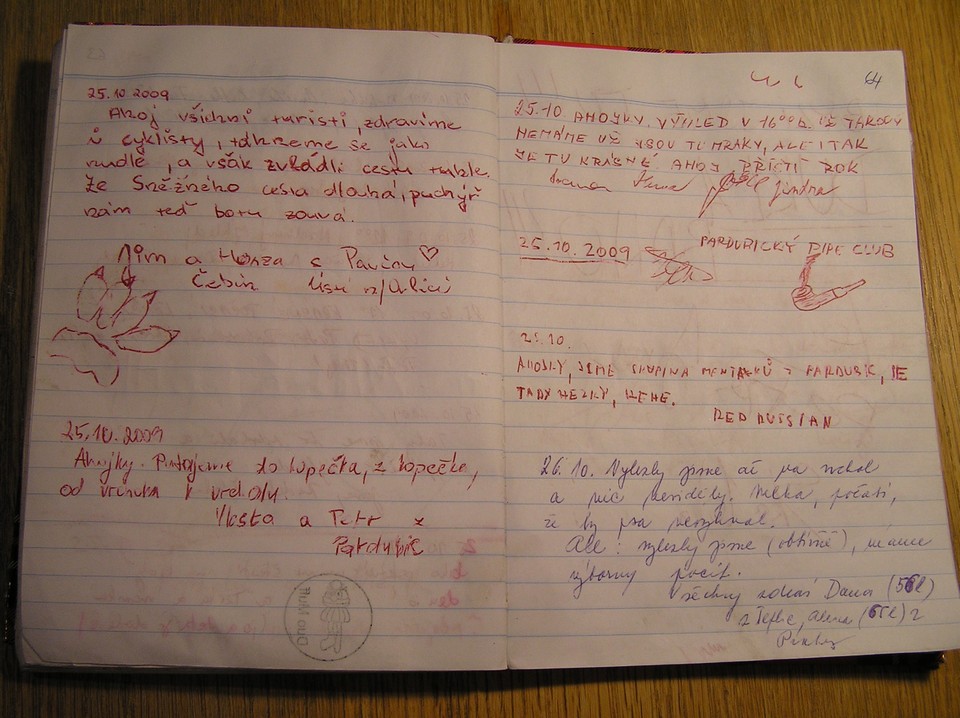 25.10 2009
Ahoj všichni turisti, zdravíme
i cyklisty, táhneme se jako
nudle, a však zvládli cestu tuhle.
Ze Sněžného cesta dlouhá, puchýř
nám teď botu zouvá.
a Honza s Pavčou ♡
Čebín
25.10.2009
Ahojky. Putujeme do kopečka, z kopečka,
od vršku k vrcholu.
Vlasta a Petr z
Pardubic
64
25.10 AHOJKY. VÝHLED V 16°° h. UŽ TAKOVÝ
NEMÁME UŽ JSOU TU MRAKY, ALE I TAK
JE TU KRÁSNĚ. AHOJ PŘÍŠTÍ ROK
Jindra
25.10.2009
PARDUBICKÝ PIPE CLUB
25.10.
AHOJKY, JSME SKUPINA Z PARDUBIC, JE
TADY HEZKY, HEHE.
RED RUSSIAN
26.10. Vylezly jsme až na vrchol
a nic neviděly. Mlha, počasí,
že by psa nevyhnal.
Ale: vylezly jsme (obtížně), máme
výborný pocit.
všechny zdraví Dana (56l)
z Teplic, Alena (65l) z
Prahy